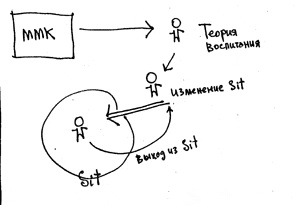 ММК
Теория
воспитания
изменение Sit
выход из Sit
Sit